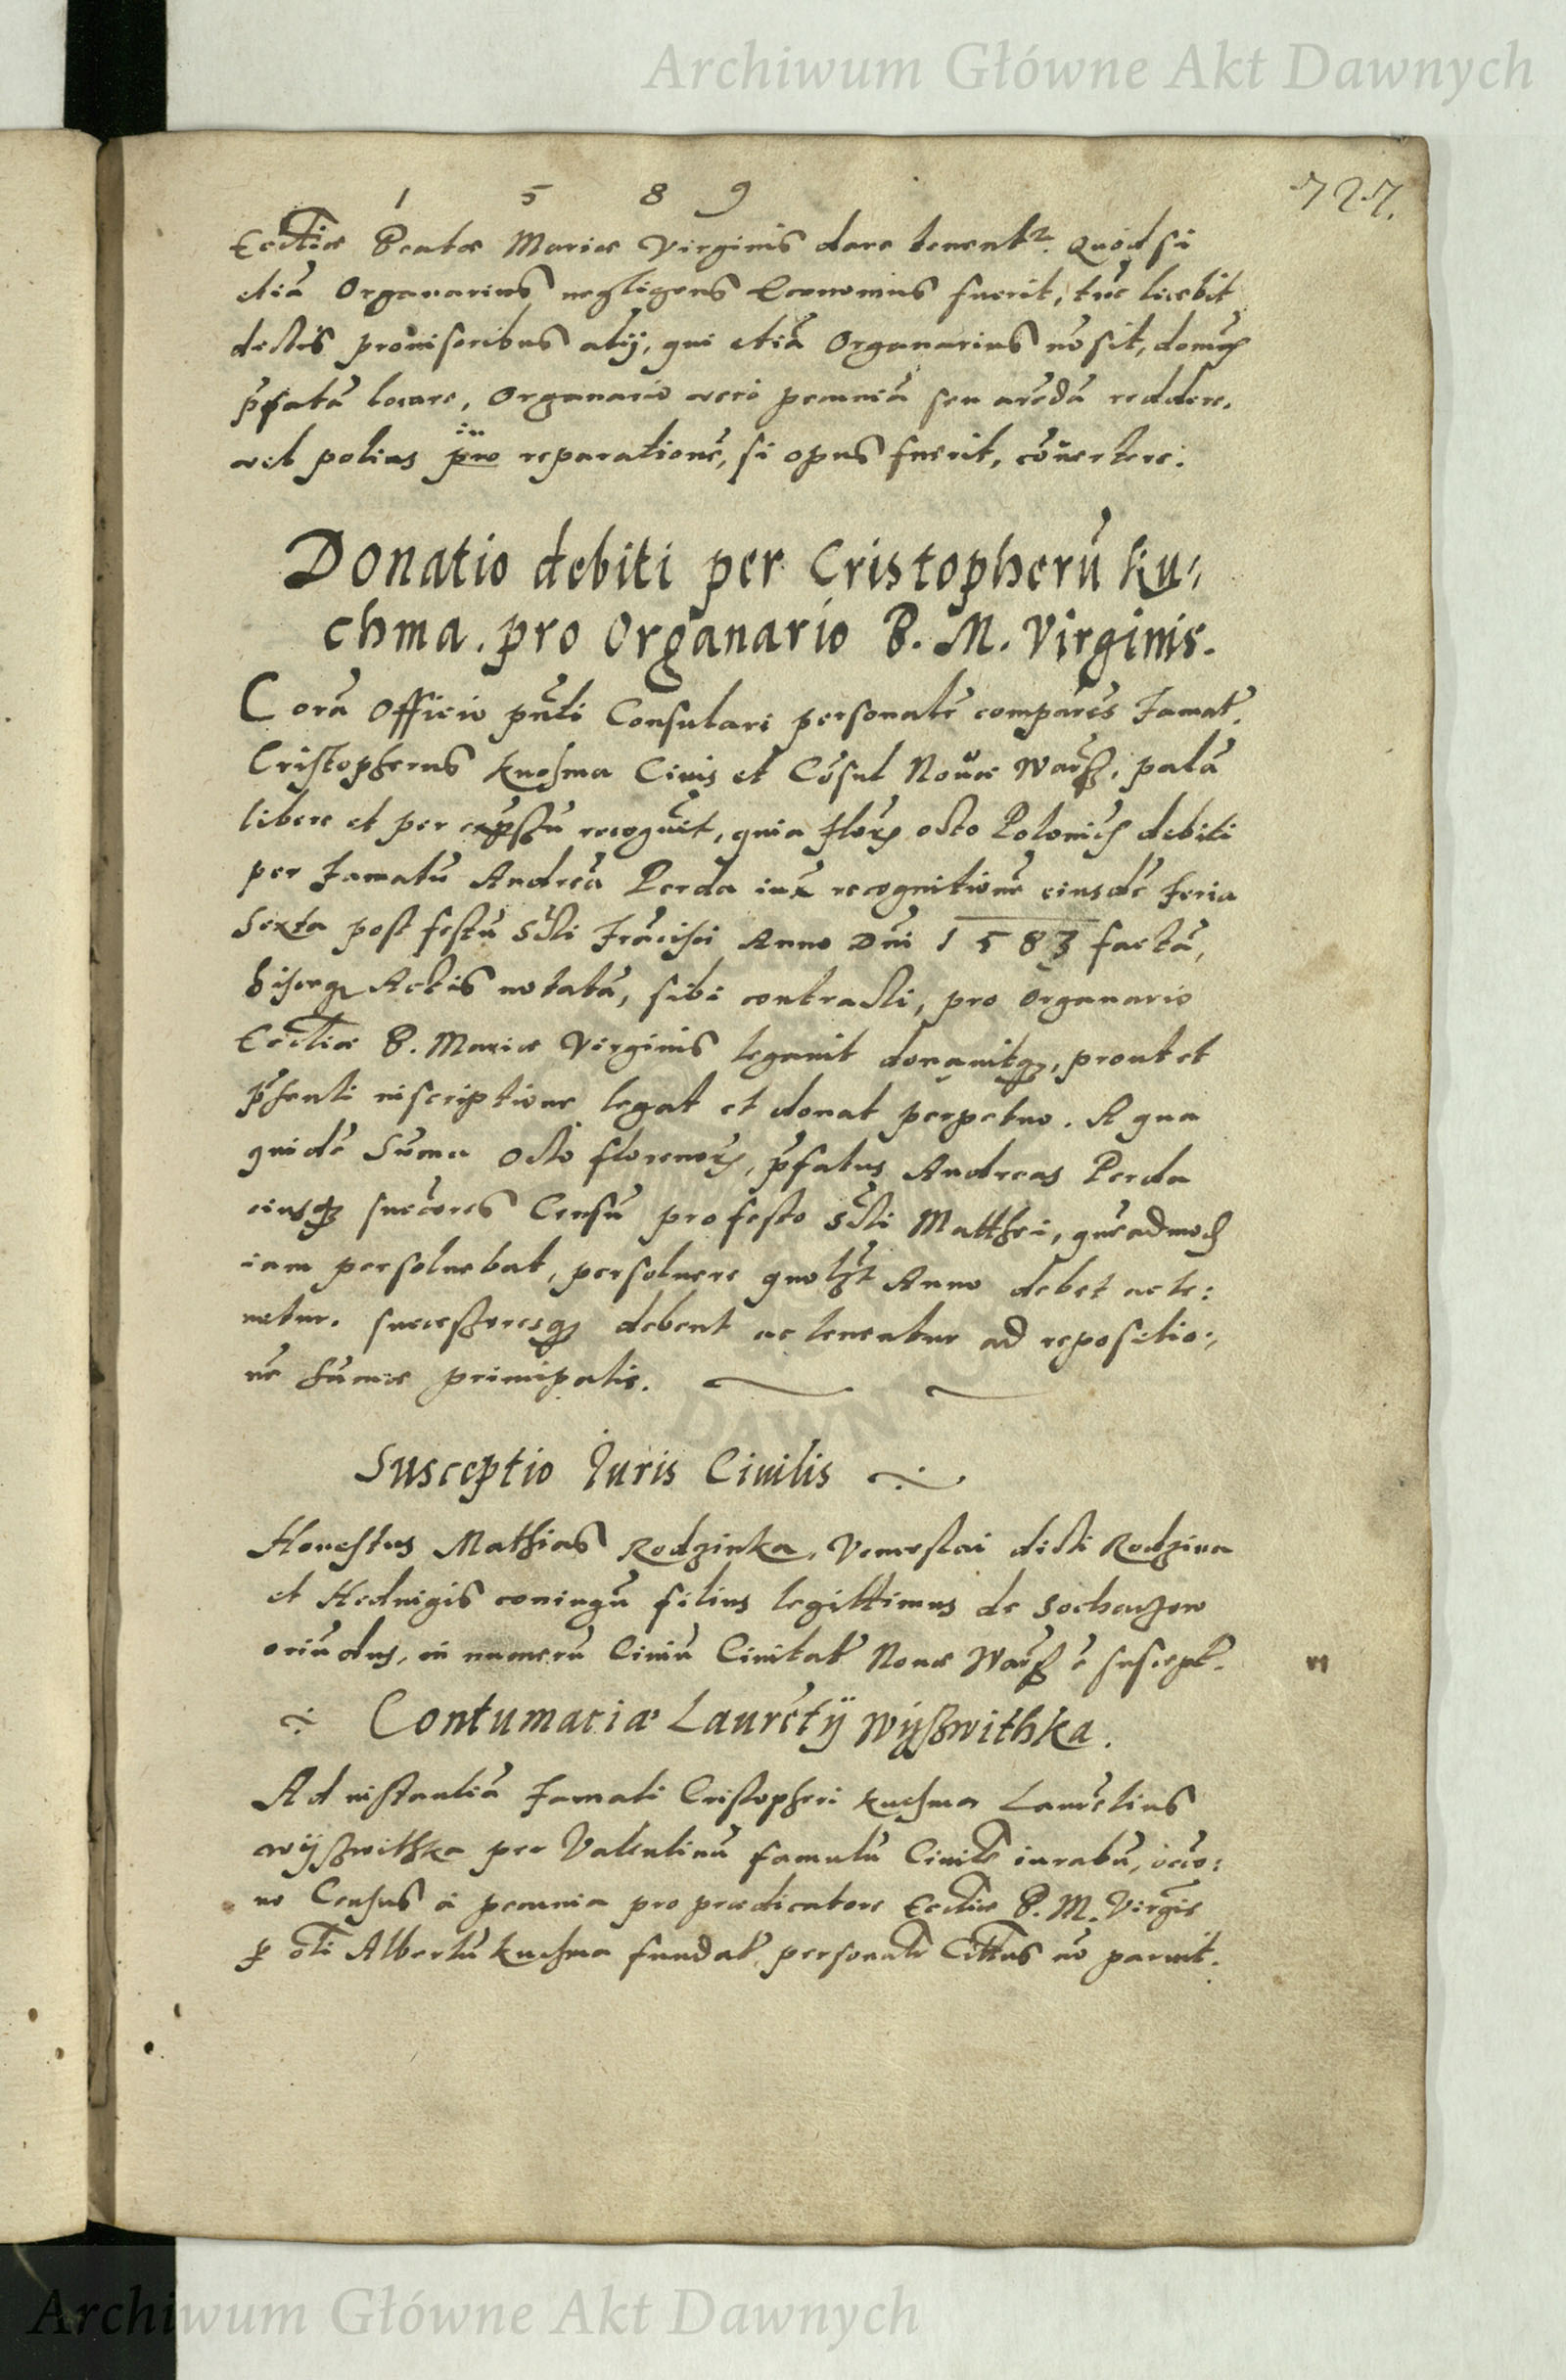 Archiwum Główne Akt Dawnych
1 5 8 9
727.
Eccliæ Beatæ Mariæ Virginis dare tenentr. Quòd si
etiã Organarius negligens Economus fuerit, tũc licebit
dictis prouisoribus alij, qui etiã Organarius nõ sit, domũ
p̃fatã locare, Organario vero pecuniã seu arẽdã reddere.
vel potius pro in reparationẽ, si opus fuerit, cõuertere.
Donatio debiti per Cristopherũ Ku-
chma. pro Organario B. M. Virginis.
Corã Officio pñti Consulari personalr̃ comparẽs Famat9
Cristopherus Kuchma Ciuis et Cõsul Nouæ Warß, palã
libere et per expßũ recogũit, quia Flor octo Polonic debiti
per Famatũ Andreã Perda iux recognitionẽ eiusdẽ feria
Sexta post festũ Scti Frãcisci Anno Dñi 1583 factã,
hisceq Actis notatã, sibi contracti, pro Organario
Eccliæ B. Mariæ Virginis legauit donauitq, prout et
p̃senti inscriptione legat et donat perpetuo. A qua
quidẽ Sũma octo florenor, p̃fatus Andreas Perda
eiusq succores Censũ pro festo Scti Matthei, quẽadmod
iam persoluebat, persoluere quolzt Anno debet ac te:
netur. successoresq debent ac tenentur ad repositio:
nẽ Sũmæ principalis.
Susceptio Iuris Ciuilis
Honestus Mathias Rodzinka, Venceslai dicti Rodzina
et Heduigis coniugũ filius legittimus de Sochaczew
oriũdus, in numerũ Ciuiũ Ciuitat Nouæ Warß ẽ suscept.
Contumaciæ Laurẽtij Wyßwithka.
Ad instantiã Famati Cristopheri Kuchma Laurẽtius
Wyßwithka per Valentinũ famulũ Ciuitt iuratũ, occõ:
ne Census à pecunia pro prædicatore Eccliæ B. M. Virgĩs
p oli Albertũ Kuchma fundat personalr Cittus nõ paruit.
Archiwum Główne Akt Dawnych